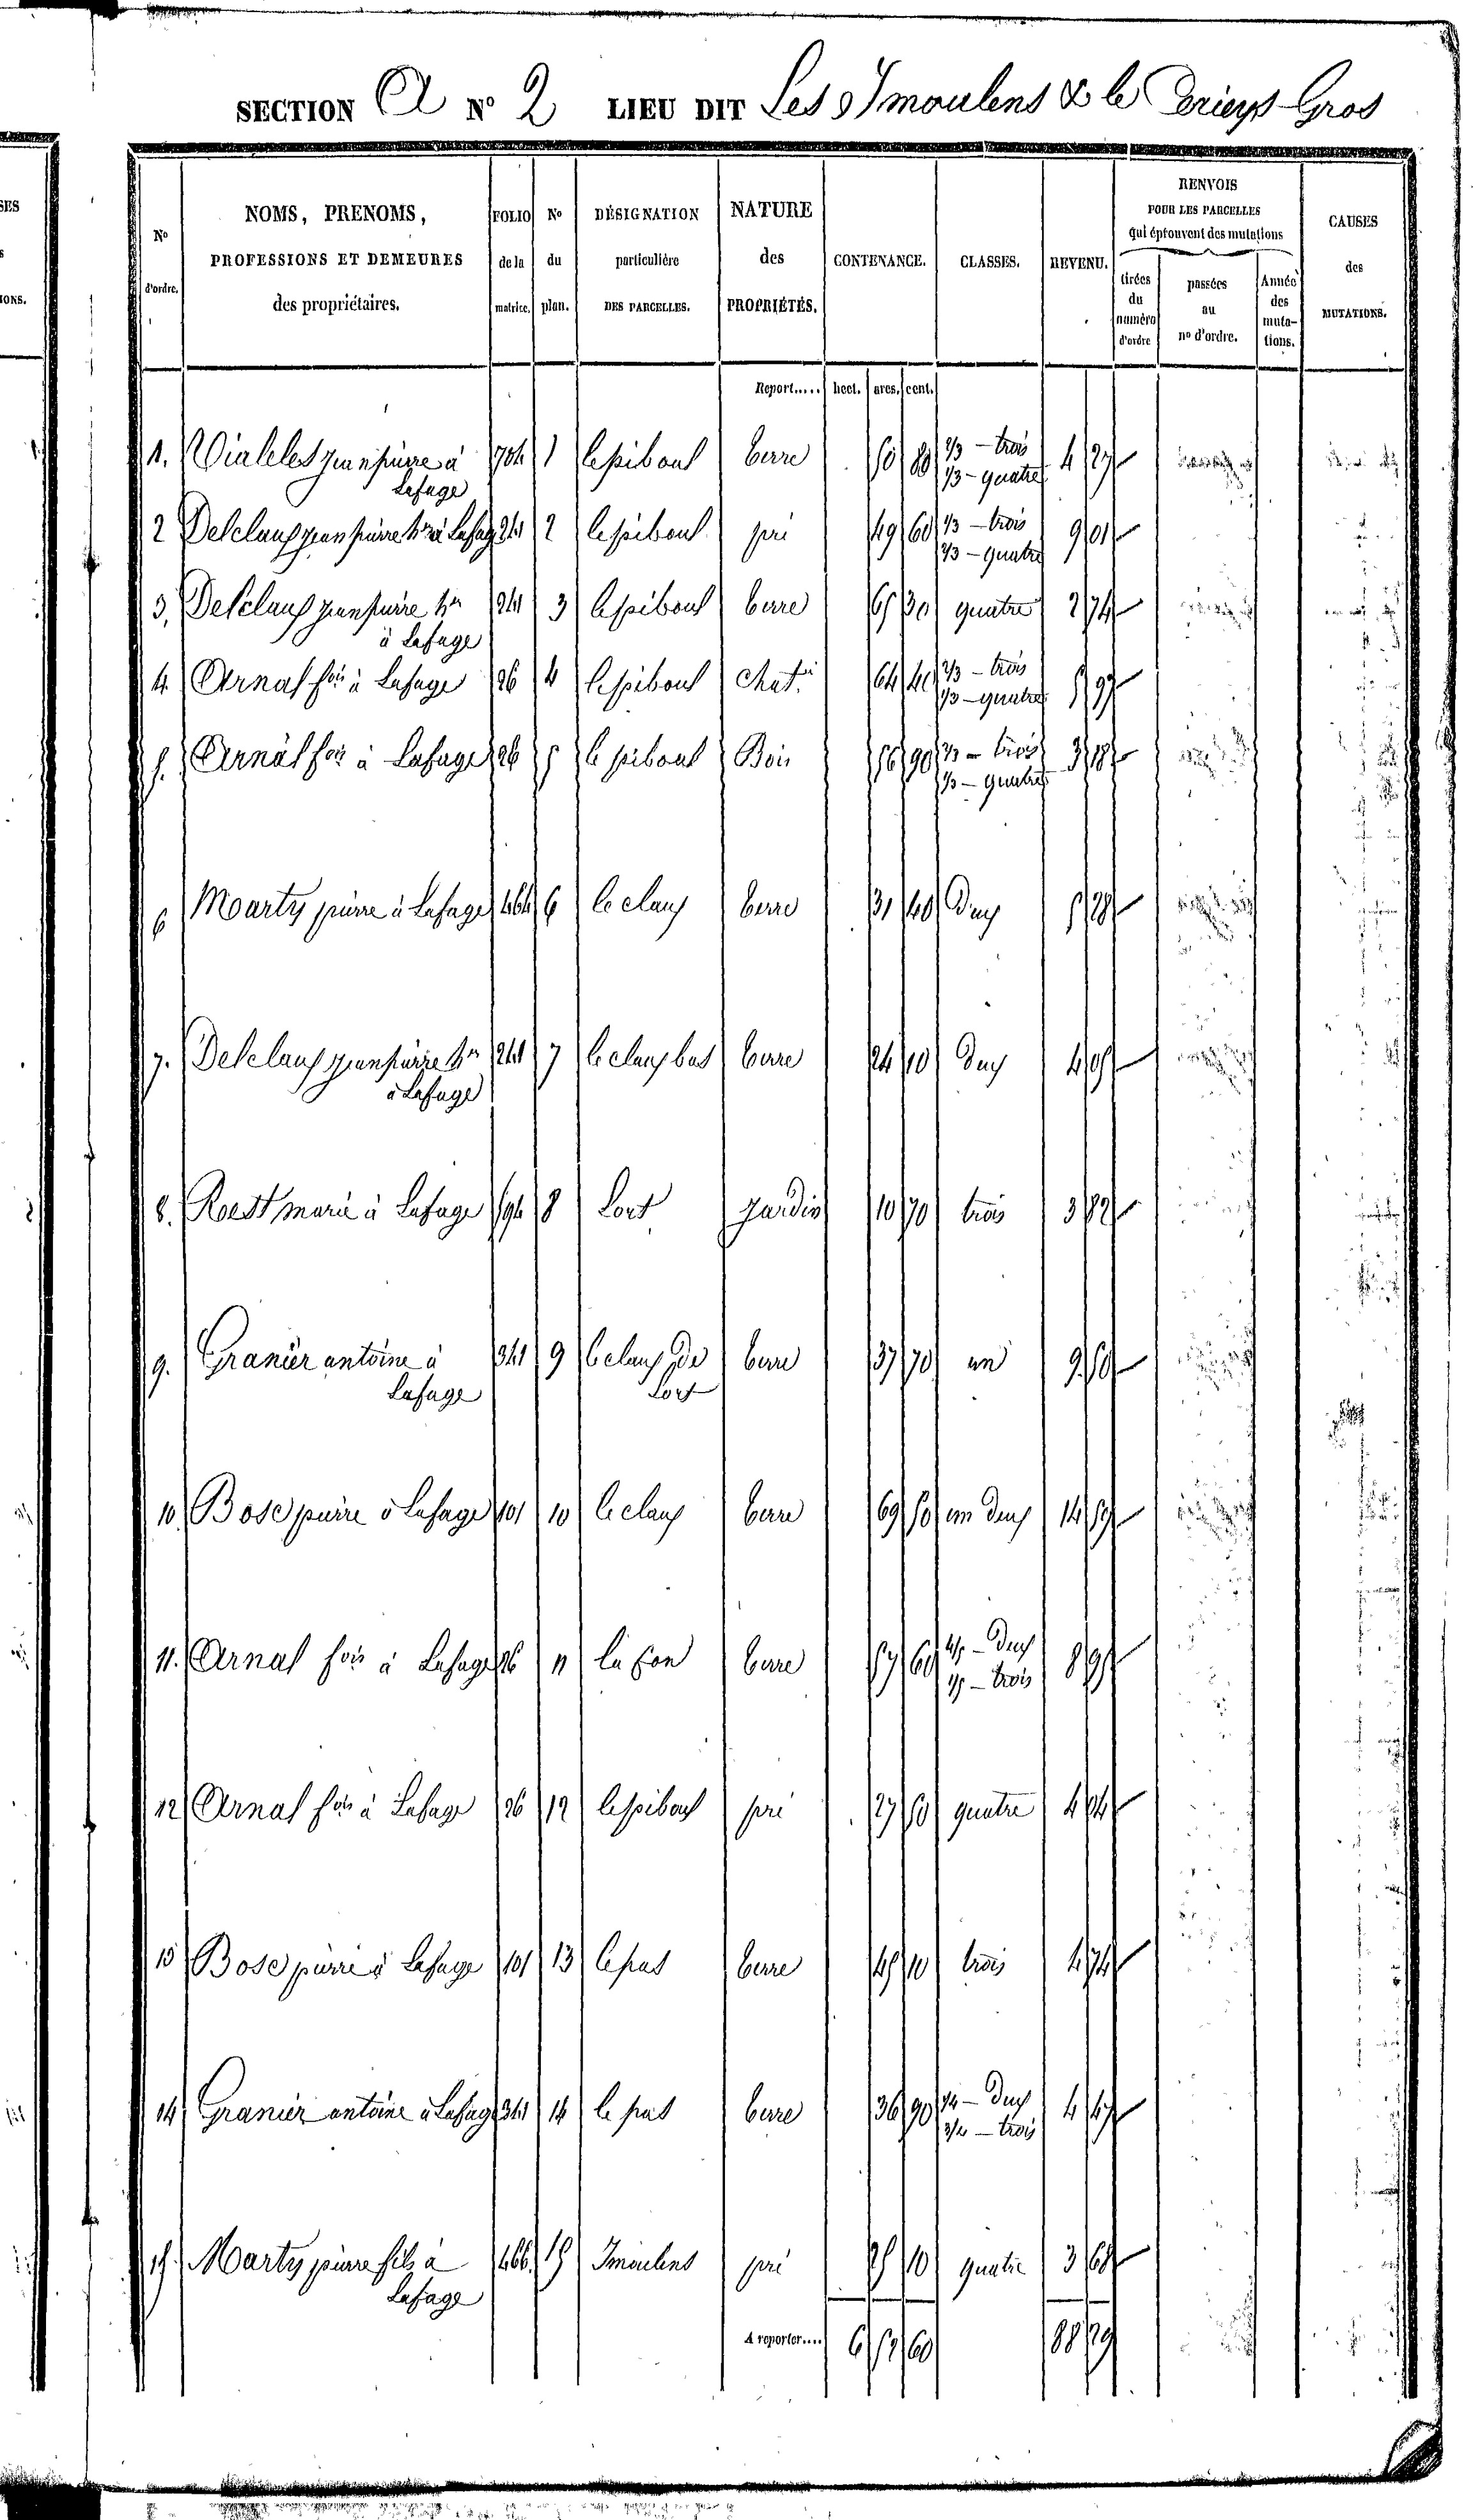 SES
IONS.
SECTION A N° 2 LIEU DIT Les Imoulens & le Gros
N° d'ordre.
NOMS, PRENOMS,
PROFESSIONS ET DEMEURES
des propriétaires.
FOLIO de la matrice.
N° du plan.
DÉSIGNATION
particulière
DES PARCELLES.
NATURE
des
PROPRIÉTÉS.
CONTENANCE.
CLASSES.
REVENU.
RENVOIS
POUR LES PARCELLES
qui éprouvent des mutations
tirées du numéro d'ordre
passées au n° d'ordre.
Année des muta-tions.
CAUSES
des
MUTATIONS.
Report..... hect. ares. cent.
1. Vialeles jean pierre à 704 1 le piboul terre 50 80 2/3 - trois 4 27
Lafage 1/3 - quatre
2 Delclaux jean pierre hrs à Lafage 241 2 le piboul pré 49 60 1/3 - trois 9 01
2/3 - quatre
3. Delclaux jean pierre hrs 241 3 le piboul terre 65 30 quatre 2 74
à Lafage
4. Arnal fois à Lafage 26 4 le piboul chat. 64 40 2/3 - trois 5 97
1/3 - quatre
5. Arnal fois à Lafage 26 5 le piboul Bois 56 90 2/3 - trois 3 18
1/3 - quatre
6 Marty pierre à Lafage 464 6 le claux terre 31 40 Deux 5 28
7. Delclaux jean pierre hrs 241 7 le claux bas terre 24 10 Deux 4 05
à Lafage
8. Roest marie à Lafage 594 8 Lort jardin 10 70 trois 3 82
9. Granier antoine à 341 9 le claux de terre 37 70 un 9 50
Lafage Lort
10. Bosc pierre à Lafage 101 10 le claux terre 69 50 un deux 14 59
11. Arnal fois à Lafage 26 11 la fon terre 57 60 4/5 - Deux 8 95
1/5 - trois
12 Arnal fois à Lafage 26 12 le piboul pré 27 50 quatre 4 04
13 Bosc pierre à Lafage 101 13 le pas terre 45 10 trois 4 74
14 Granier antoine à Lafage 341 14 le pas terre 36 90 1/4 - Deux 4 47
3/4 - trois
15. Marty pierre fils à 466 15 Imoulens pré 25 10 quatre 3 68
Lafage
A reporter.... 6 52 60 88 29